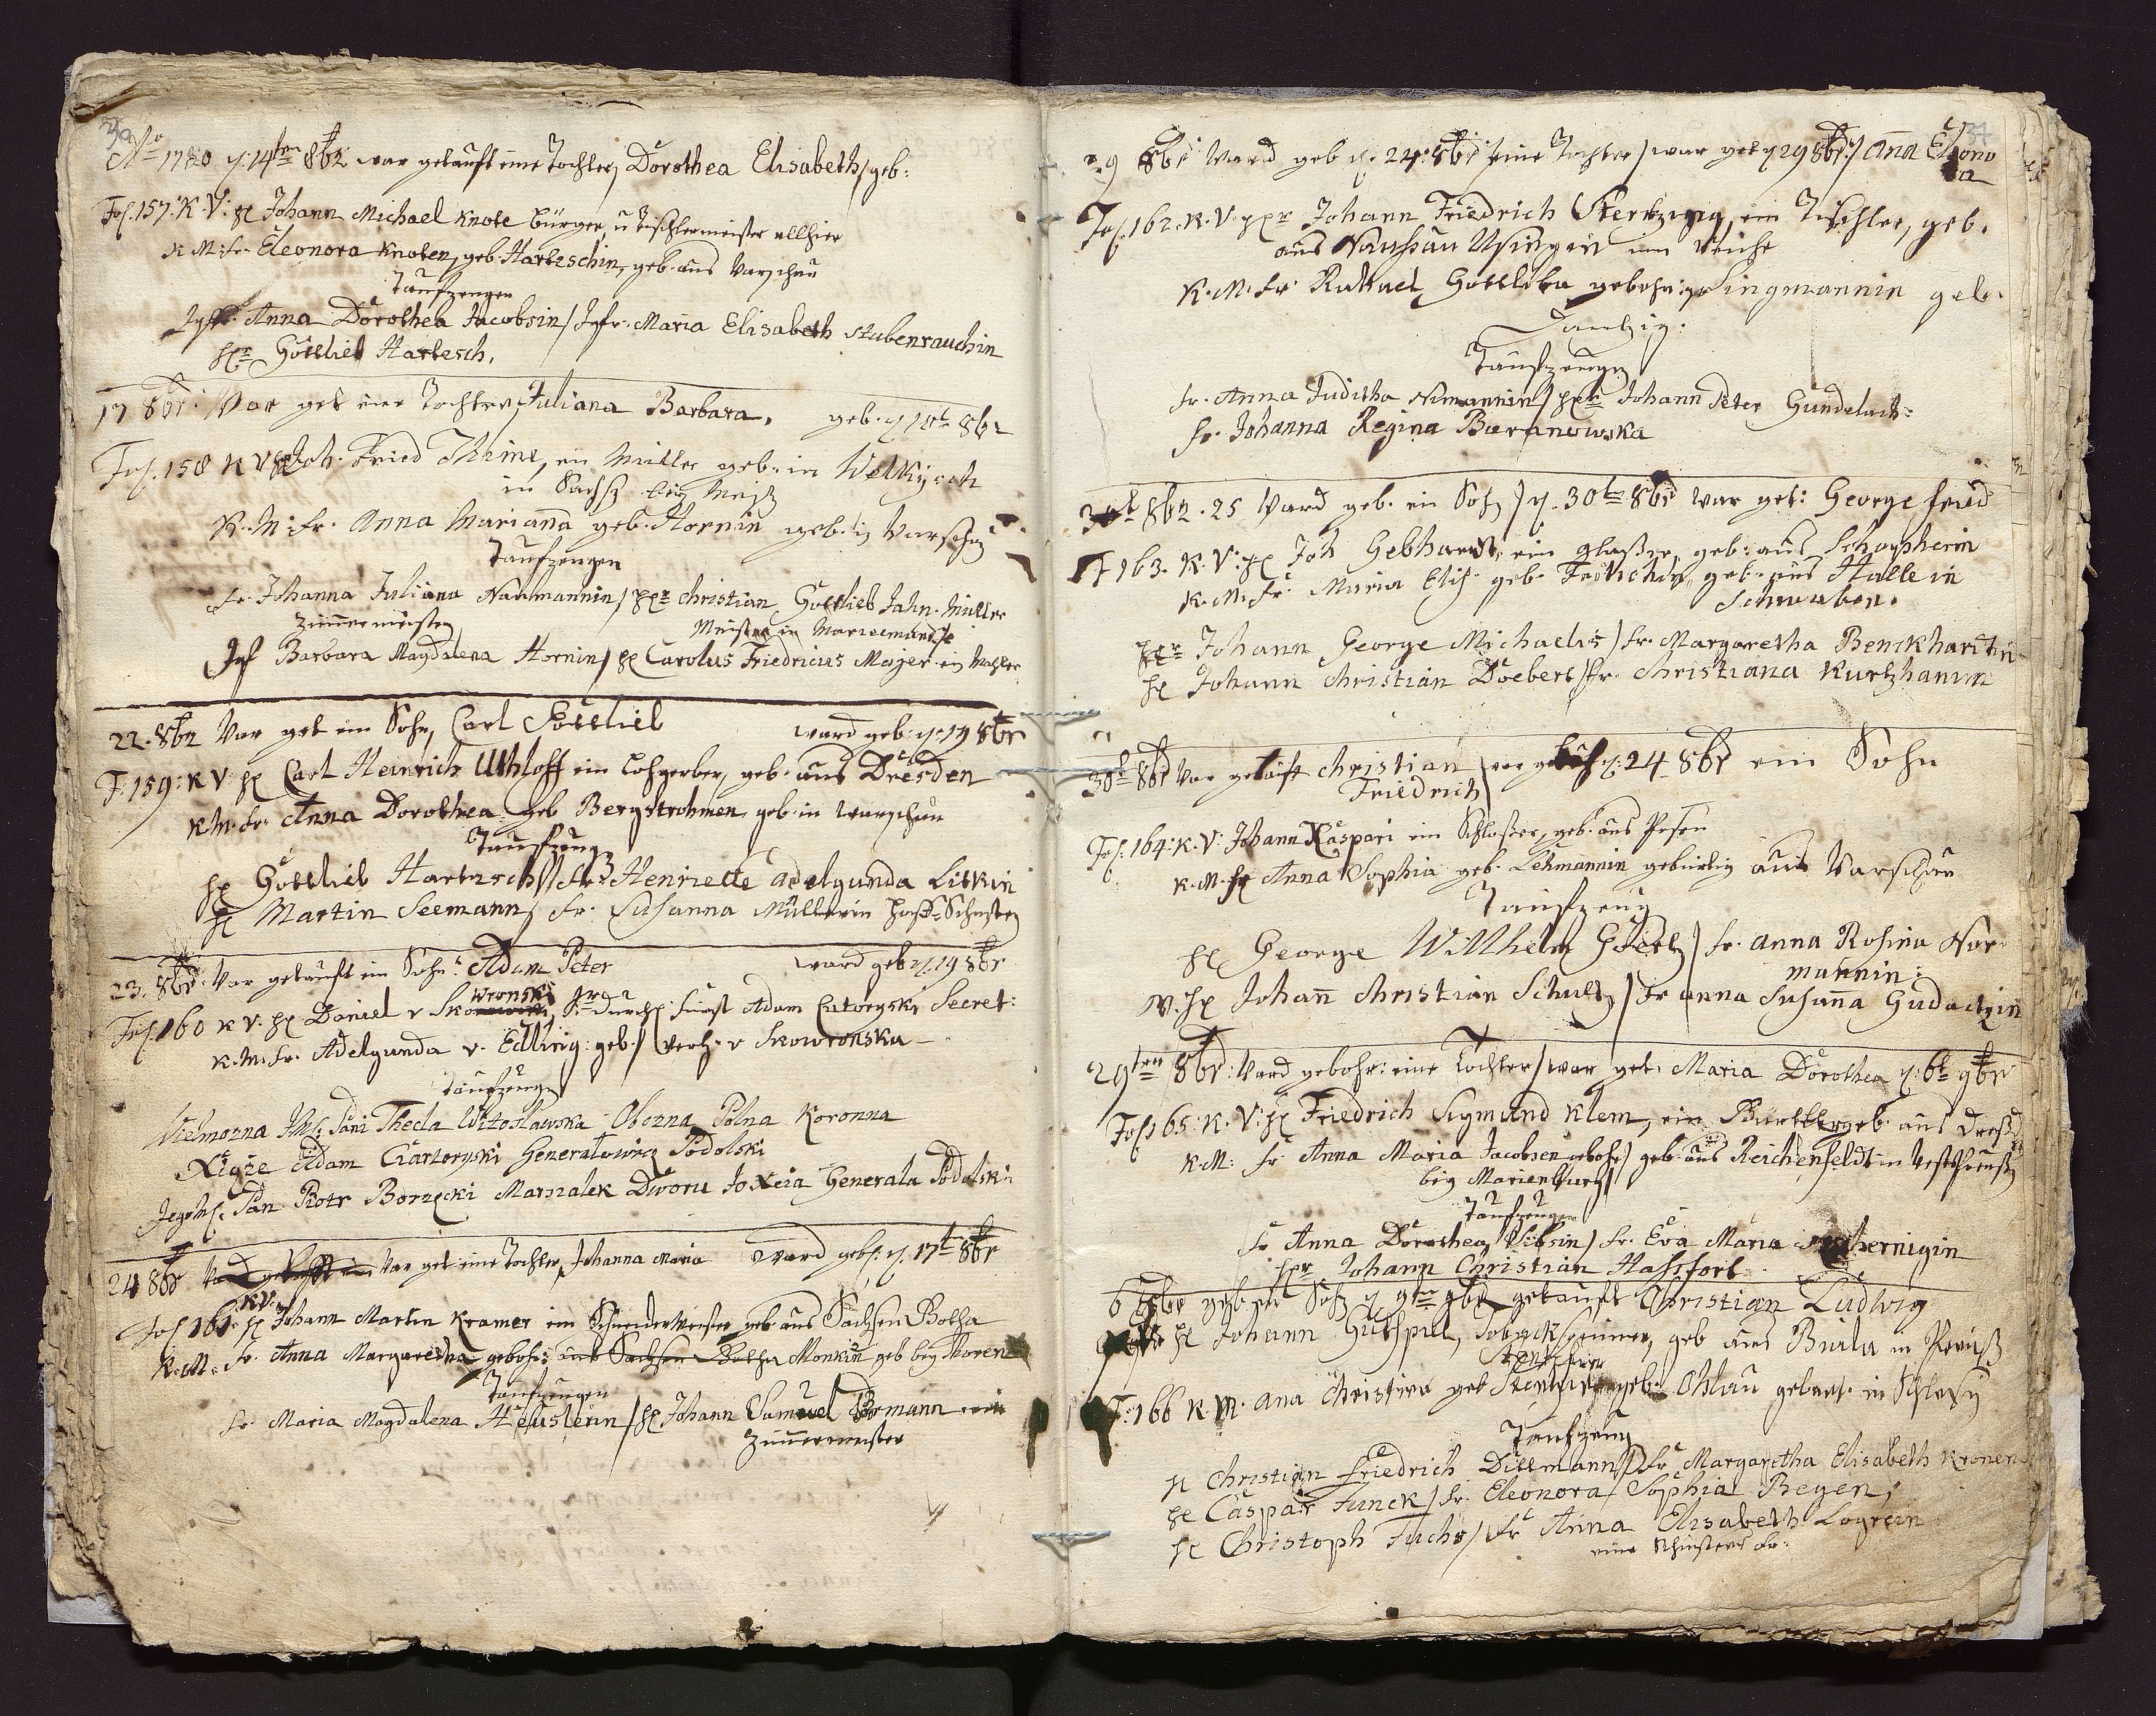 Aº 1780 d. 14ten 8br war getauft eine Tochter, Dorothea Elisabeth/ geb:
Fol. 157: K V: H Johann Michael Knote bürger u Tischlermeister allhier
K M: Fr. Eleonora Knoten, geb. Harteschin, geb. aus Warschau
Taufzeugen
Jgfr. Anna Dorothea Jacobsin/ Jgfr: Maria Elisabeth Stubenrauchin
Hr Gottlieb Hartesch.
17 8br: War get eine Tochter, Juliana Barbara. geb. d 8br
Fol. 158 K V H Joh. Fried Thime, ein Müller geb. in
in Sachß bey
K. M: Fr. Anna Mariana geb. Hornin geb. in Warschau
Taufzeugen
Fr. Johanna Juliana Naumannin/ Hr Christian Gottlieb Jahn. Müller
Zimmermeister Meister in
Jgf Barbara Magdalena Hornin/ H Carolus Friedricus Majer ein Mahler
22. 8br War get ein Sohn, Carl Gottlieb ward geb. d. 19 8br
F: 159: K V: H Carl Heinrich Uthloff ein Lohgerber, geb. aus Dresden
K. M. Fr. Anna Dorothea geb Bergstrohmen geb. in Warschau
Taufzeug
H Gottlieb Hartzsch/ Fr. Henriette Adelgunda Litkin
H Martin Seemann/ Fr. Susanna Müllerin
23. 8br. War getauft ein Sohn: Adam Peter ward geb d. 19 8br
Fol. 160 K V. H Daniel v Skowronski, Sr Durchl: Fürst Adam Cztoryski Secret:
K. M. Fr. Adelgunda v. Edling: geb./ Verh. v Skowronska
Taufzeugen
Wielmozna Pani Thecla Witoslawska Obozna Polna Koronna
Xiąze Adam Czartoryski Generałowicz Podolski
Jego Pan Piotr Borzęcki Marszalek Dworu Jo Xcia Generala Podolski
24 8br War get eine Tochter, Johanna Maria ward geb. d. 17t 8br
Fol 161: K V. H Johann Martin Kramer ein Schneidermeister geb. aus Sachsen Gotha
K. M. Fr. Anna Margaretha, gebohr: aus Sachsen Gotha Monkin geb bey Thoren
Taufzeugen
Fr Maria Magdalena Heuslerin/ H Johann Samuel ein
Zimmermeister
29 8br Ward geb d. 24. 8br eine Tochter/ war get d 29 8br:/ Anna Eleono
ra
Fol. 162. K. V. Hr Johann Friedrich Stertzing, ein Tischler, geb.
aus Nassau Usingen im Reiche
K. M. Fr. Rahael Gottliba gebohr: Singmannin geb.
Dantzig:
Taufzeugen
Fr. Anna Juditha Nimannin/ Hr Johann Peter Gundelach:
Fr. Johanna Regina Baranowska
30t 8br. 25 Ward geb. ein Sohn/ d. 30t 8br war get: George Fried
F 163. K. V: H Joh Gebhardt, ein Glaßer, geb: aus
K. M: Fr. Maria Elis. geb. geb. aus Halle in
Schwaben.
Hr Johann George Michaelis/ Fr. Margaretha Benckhardtin
H Johann Christian Doebert/ Fr. Christiana Kurtzhanin
30t 8br War getauft Christian war gebohr d. 24 8br ein Sohn
Friedrich
Fol. 164: K. V: Johann Kaspari ein Schloßer, geb. aus Posen
K. M. Fr Anna Sophia geb. Lehmannin gebürtig aus Warschau
Taufzeug
H George Willhelm Goertz/ Fr. Anna Rosina Nor
mannin:
H Johann Christian Schultz/ Fr Anna Susanna Gudactzin
29ten 8br: Ward gebohr: eine Tochter/ war get. Maria Dorothea d. 6t 9br
Fol 165: K. V: H Friedrich Sigmund Klem, ein geb. aus Dreßd
K. M: Fr Anna Maria Jacobsen gebohr/ geb. aus Reichenfeldt in Westpreuß
bey Marienburg
Taufzeugen
Fr Anna Dorothea Wibsin/ Fr. Eva Maria
Hr Johann Christian Hassfort
6 geb. ein Sohn d 9br getauft Christian Ludwig
H Johann Guthpul, Toback spinner, geb aus Biala in
F: 166 K. M. Ana Christina geb geb. Ohlau in Schlesi
Taufzeug
H Christian Friedrich Dittmann/ Fr Margaretha Elisabeth Kronen
H Caspar Funck/ Fr. Eleonora Sophia Regen,
H Christoph Fuchs/ Fr Anna Elisabeth Logrein
eine Schusters Fr: